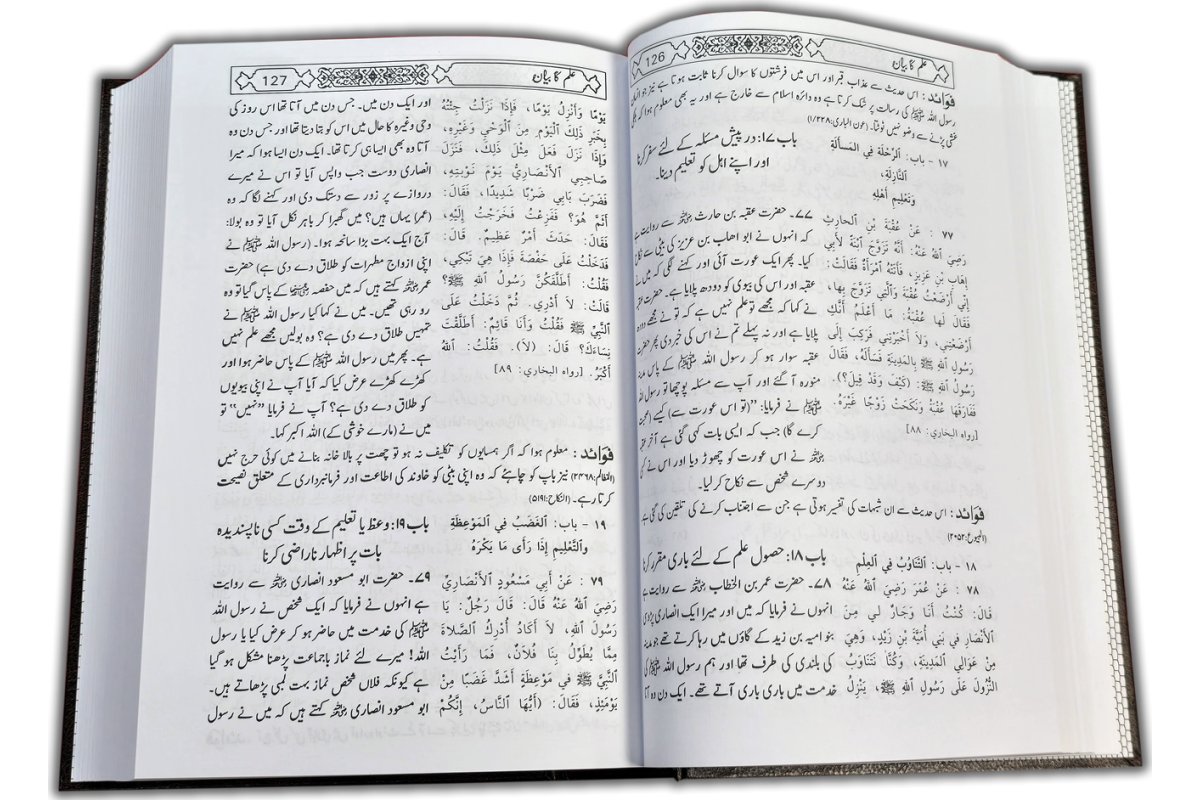 علم کا بیان
126
فوائد : اس حدیث سے عذاب قبر اور اس میں فرشتوں کا سوال کرنا ثابت ہوتا ہے نیز جو انسان
رسول اللہ ﷺ کی رسالت پر شک کرتا ہے وہ دائرہ اسلام سے خارج ہے اور یہ بھی معلوم ہوا کہ
غشی پڑنے سے وضو نہیں ٹوٹتا۔ (عون الباری:۱/۲۳۸)
۱۷ - باب: الرِّحْلَة فِي المَسأَلَةِ
النَّازِلَةِ،
وَتَعْلِيمِ أَهْلِهِ
۷۷ : عَنْ عُقْبَةَ بْنِ الْحارِثِ
رَضِيَ اللهُ عَنْهُ: أَنَّهُ تَزَوَّجَ ابْنَةً لِأَبِي
إِهَابِ بْنِ عَزِيزٍ، فَأَتَتْهُ امْرَأَةٌ فَقَالَتْ:
إِنِّي أَرْضَعْتُ عُقْبَةَ وَالَّتِي تَزَوَّجَ بِهَا،
فَقَالَ لَهَا عُقْبَةُ: مَا أَعْلَمُ أَنَّكِ
أَرْضَعْتِنِي، وَلَا أَخْبَرْتِنِي فَرَكِبَ إِلَى
رَسُولِ اللهِ ﷺ بِالمَدِينَةِ فَسَأَلَهُ، فَقَالَ
رَسُولُ اللهِ ﷺ: (كَيْفَ وَقَدْ قِيلَ؟).
فَفَارَقَهَا عُقْبَةُ وَنَكَحَتْ زَوْجًا غَيْرَهُ.
[رواه البخاري: ۸۸]
باب ۱۷: در پیش مسئلہ کے لئے سفر کرنا
اور اپنے اہل کو تعلیم دینا۔
۷۷۔ حضرت عقبہ بن حارث رضی اللہ عنہ سے روایت ہے
کہ انہوں نے ابو اھاب بن عزیز کی بیٹی سے نکاح
کیا۔ پھر ایک عورت آئی اور کہنے لگی کہ میں نے
عقبہ اور اس کی بیوی کو دودھ پلایا ہے۔ حضرت عقبہ
نے کہا کہ مجھے تو علم نہیں ہے کہ تو نے مجھے دودھ
پلایا ہے اور نہ پہلے تم نے اس کی خبر دی پھر حضرت
عقبہ سوار ہو کر رسول اللہ ﷺ کے پاس مدینہ
منورہ آ گئے اور آپ سے مسئلہ پوچھا تو رسول اللہ
ﷺ نے فرمایا: "(تو اس عورت سے) کیسے
کرے گا) جب کہ ایسی بات کہی گئی ہے آخر عقبہ
رضی اللہ عنہ نے اس عورت کو چھوڑ دیا اور اس نے کسی
دوسرے شخص سے نکاح کر لیا۔
فوائد : اس حدیث سے ان شبہات کی تفسیر ہوتی ہے جن سے اجتناب کرنے کی تلقین کی گئی ہے
(البیوع:۲۰۵۲)
۱۸ - باب: التَّنَاوُب فِي العِلْمِ
۷۸ : عَنْ عُمَرَ رَضِيَ اللهُ عَنْهُ
قَالَ: كُنْتُ أَنَا وَجَارٌ لِي مِنَ
الأَنْصَارِ فِي بَنِي أُمَيَّةَ بْنِ زَيْدٍ، وَهْيَ
مِنْ عَوَالِي المَدِينَةِ، وَكُنَّا نَتَنَاوَبُ
النُّزُولَ عَلَى رَسُولِ اللهِ ﷺ، يَنْزِلُ
باب ۱۸: حصول علم کے لئے باری مقرر کرنا
۷۸۔ حضرت عمر بن الخطاب رضی اللہ عنہ سے روایت ہے
انہوں نے فرمایا کہ میں اور میرا ایک انصاری پڑوسی
بنو امیہ بن زید کے گاؤں میں رہا کرتے تھے جو مدینہ
کی بلندی کی طرف تھا اور ہم رسول اللہ ﷺ کی
خدمت میں باری باری آتے تھے۔ ایک دن وہ آتا
علم کا بیان
127
يَوْمًا وَأَنْزِلُ يَوْمًا، فَإِذَا نَزَلْتُ جِئْتُهُ
بِخَبَرِ ذَلِكَ الْيَوْمِ مِنَ الْوَحْيِ وَغَيْرِهِ،
وَإِذَا نَزَلَ فَعَلَ مِثْلَ ذَلِكَ، فَنَزَلَ
صَاحِبِي الأَنْصَارِيُّ يَوْمَ نَوْبَتِهِ،
فَضَرَبَ بَابِي ضَرْبًا شَدِيدًا، فَقَالَ:
أَثَمَّ هُوَ؟ فَفَزِعْتُ فَخَرَجْتُ إِلَيْهِ،
فَقَالَ: حَدَثَ أَمْرٌ عَظِيمٌ. قَالَ:
فَدَخَلْتُ عَلَى حَفْصَةَ فَإِذَا هِيَ تَبْكِي،
فَقُلْتُ: أَطَلَّقَكُنَّ رَسُولُ اللهِ ﷺ؟
قَالَتْ: لاَ أَدْرِي. ثُمَّ دَخَلْتُ عَلَى
النَّبِيِّ ﷺ فَقُلْتُ وَأَنَا قَائِمٌ: أَطَلَّقْتَ
نِسَاءَكَ؟ قَالَ: (لاَ). فَقُلْتُ: اللهُ
أَكْبَرُ. [رواه البخاري: ۸۹]
اور ایک دن میں۔ جس دن میں آتا تھا اس روز کی
وحی وغیرہ کا حال میں اس کو بتا دیتا تھا اور جس دن وہ
آتا وہ بھی ایسا ہی کرتا تھا۔ ایک دن ایسا ہوا کہ میرا
انصاری دوست جب واپس آیا تو اس نے میرے
دروازے پر زور سے دستک دی اور کہنے لگا کہ وہ
(عمر) یہاں ہیں؟ میں گھبرا کر باہر نکل آیا تو وہ بولا:
آج ایک بہت بڑا سانحہ ہوا۔ (رسول اللہ ﷺ نے
اپنی ازواج مطہرات کو طلاق دے دی ہے) حضرت
عمر رضی اللہ عنہ کہتے ہیں کہ میں حفصہ رضی اللہ عنہا کے پاس گیا تو وہ
رو رہی تھیں۔ میں نے کہا کیا رسول اللہ ﷺ نے
تمہیں طلاق دے دی ہے؟ وہ بولیں مجھے علم نہیں
ہے۔ پھر میں رسول اللہ ﷺ کے پاس حاضر ہوا اور
کھڑے کھڑے عرض کیا کہ آیا آپ نے اپنی بیویوں
کو طلاق دے دی ہے؟ آپ نے فرمایا "نہیں" تو
میں نے (مارے خوشی کے) اللہ اکبر کہا۔
فوائد : معلوم ہوا کہ اگر ہمسایوں کو تکلیف نہ ہو تو چھت پر بالا خانہ بنانے میں کوئی حرج نہیں
(المظالم:۲۴۶۸) نیز باپ کو چاہئے کہ وہ اپنی بیٹی کو خاوند کی اطاعت اور فرمانبرداری کے متعلق نصیحت
کرتا رہے۔ (النکاح:۵۱۹۱)
۱۹ - باب: الغَضَب فِي المَوْعِظَةِ
والتَّعْلِيم إِذَا رَأَى مَا يَكْرَهُ
۷۹ : عَنْ أَبِي مَسْعُودٍ الأَنْصَارِيِّ
رَضِيَ اللهُ عَنْهُ قَالَ: قَالَ رَجُلٌ: يَا
رَسُولَ اللهِ، لاَ أَكَادُ أُدْرِكُ الصَّلاَةَ
مِمَّا يُطَوِّلُ بِنَا فُلاَنٌ، فَمَا رَأَيْتُ
النَّبِيَّ ﷺ في مَوْعِظَةٍ أَشَدَّ غَضَبًا مِنْ
يَوْمَئِذٍ، فَقَالَ: (أَيُّهَا النَّاسُ، إِنَّكُمْ
باب ۱۹: وعظ یا تعلیم کے وقت کسی ناپسندیدہ
بات پر اظہار ناراضی کرنا
۷۹۔ حضرت ابو مسعود انصاری رضی اللہ عنہ سے روایت
ہے انہوں نے فرمایا کہ ایک شخص نے رسول اللہ
ﷺ کی خدمت میں حاضر ہو کر عرض کیا یا رسول
اللہ! میرے لئے نماز باجماعت پڑھنا مشکل ہو گیا
ہے کیونکہ فلاں شخص نماز بہت لمبی پڑھاتے ہیں۔
ابو مسعود انصاری رضی اللہ عنہ کہتے ہیں کہ میں نے رسول